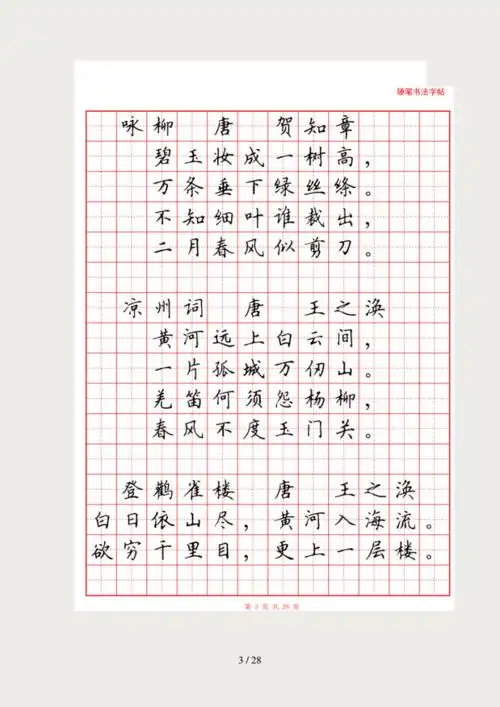 硬笔书法字帖
咏柳 唐 贺知章
碧玉妆成一树高，
万条垂下绿丝绦。
不知细叶谁裁出，
二月春风似剪刀。
凉州词 唐 王之涣
黄河远上白云间，
一片孤城万仞山。
羌笛何须怨杨柳，
春风不度玉门关。
登鹳雀楼 唐 王之涣
白日依山尽，黄河入海流。
欲穷千里目，更上一层楼。
第 3 页 共 28 页
3 / 28